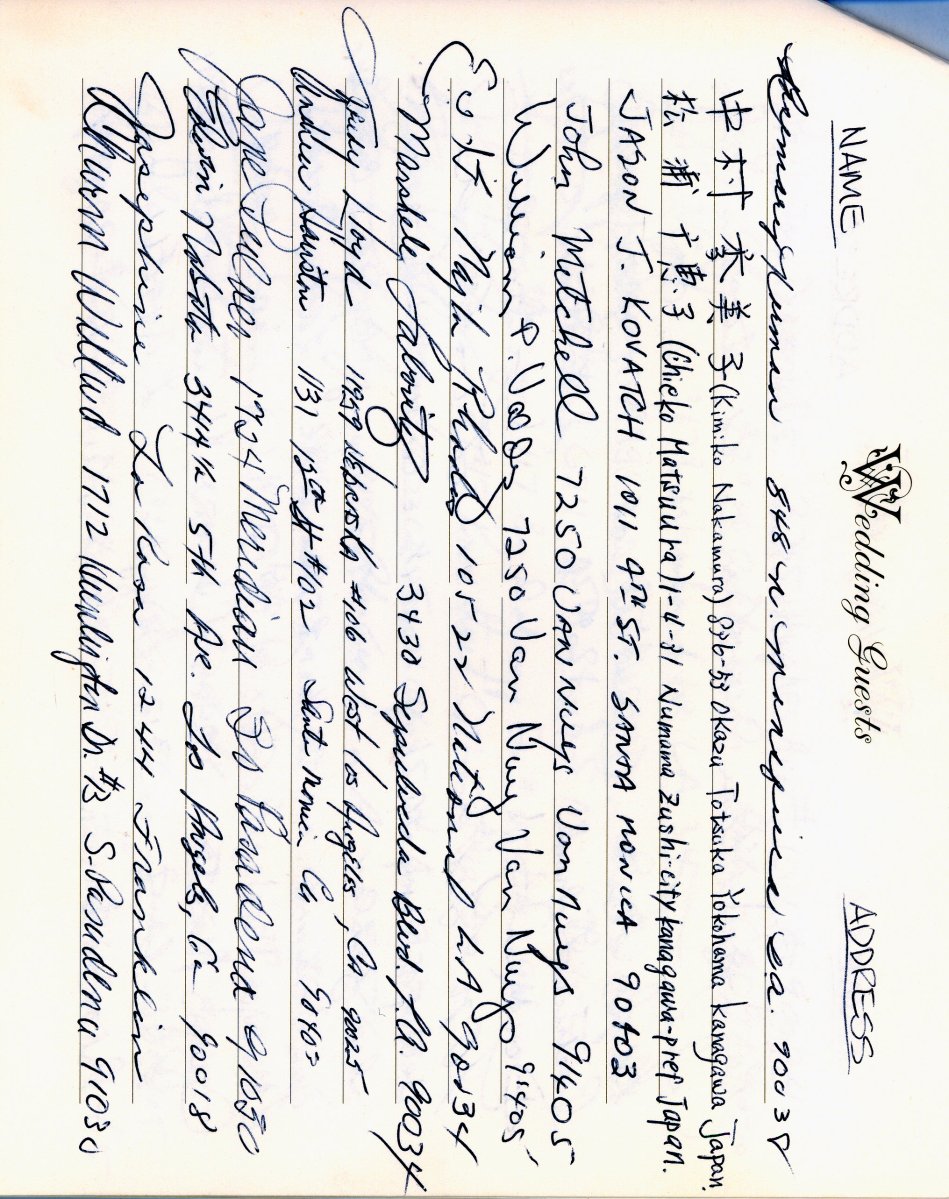 Wedding Guests
NAME ADDRESS
848 N.
中村 美子 (Kimiko Nakamura) Okazu Totsuka Yokohama Kanagawa Japan
松浦 千恵子 (Chieko Matsuura) 1-4-31 Numama Zushi-city Kanagawa-pref Japan.
JASON J. KOVATCH 1011 4TH ST. SANTA MONICA 90403
John Mitchell 7250 VAN Nuys Van Nuys 91405
William P. 7250 Van Nuys Van Nuys 91405
10522 National LA 90134
Marshall 3430 Sepulveda Blvd. L.A. 90034
Lloyd 1959 #106 West Los Angeles, Ca 90025
Andrew Hairston 1131 12th St #102 Santa Monica Ca 90403
1724 Meridian So Pasadena 91030
Edwin 3414½ 5th Ave. Los Angeles, Ca 90018
Josephine La Rosa 1244 Franklin
Willard 1712 Huntington Dr. #3 S. Pasadena 91030